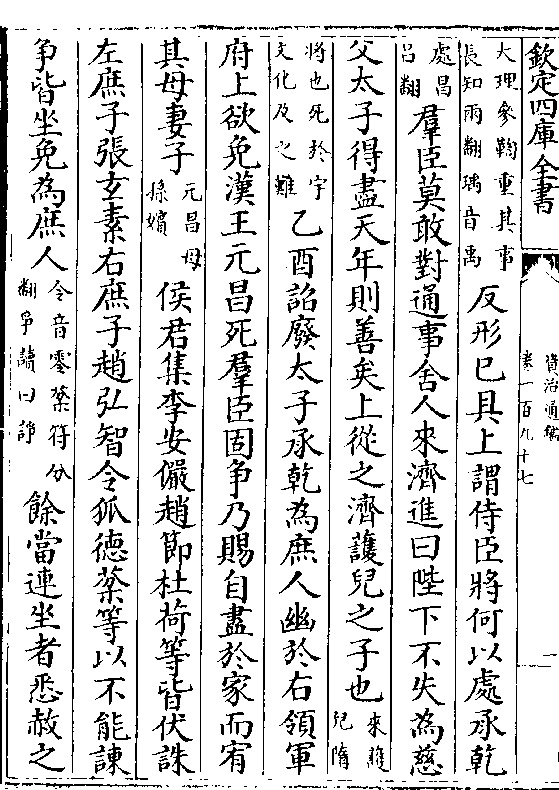 欽定四庫全書
資治通鑑
卷一百九十七
一
大理參鞫重其事
長知兩翻瑀音禹
反形已具上謂侍臣將何以處承乾
處昌
呂翻
羣臣莫敢對通事舍人來濟進曰陛下不失為慈
父太子得盡天年則善矣上從之濟護兒之子也
來護
兒隋
將也死於宇
文化及之難
乙酉詔廢太子承乾為庶人幽於右領軍
府上欲免漢王元昌死羣臣固爭乃賜自盡於家而宥
其母妻子
元昌母
孫嬪
侯君集李安儼趙節杜荷等皆伏誅
左庶子張玄素右庶子趙弘智令狐德棻等以不能諫
爭皆坐免為庶人
令音零棻符分
翻爭讀曰諍
餘當連坐者悉赦之